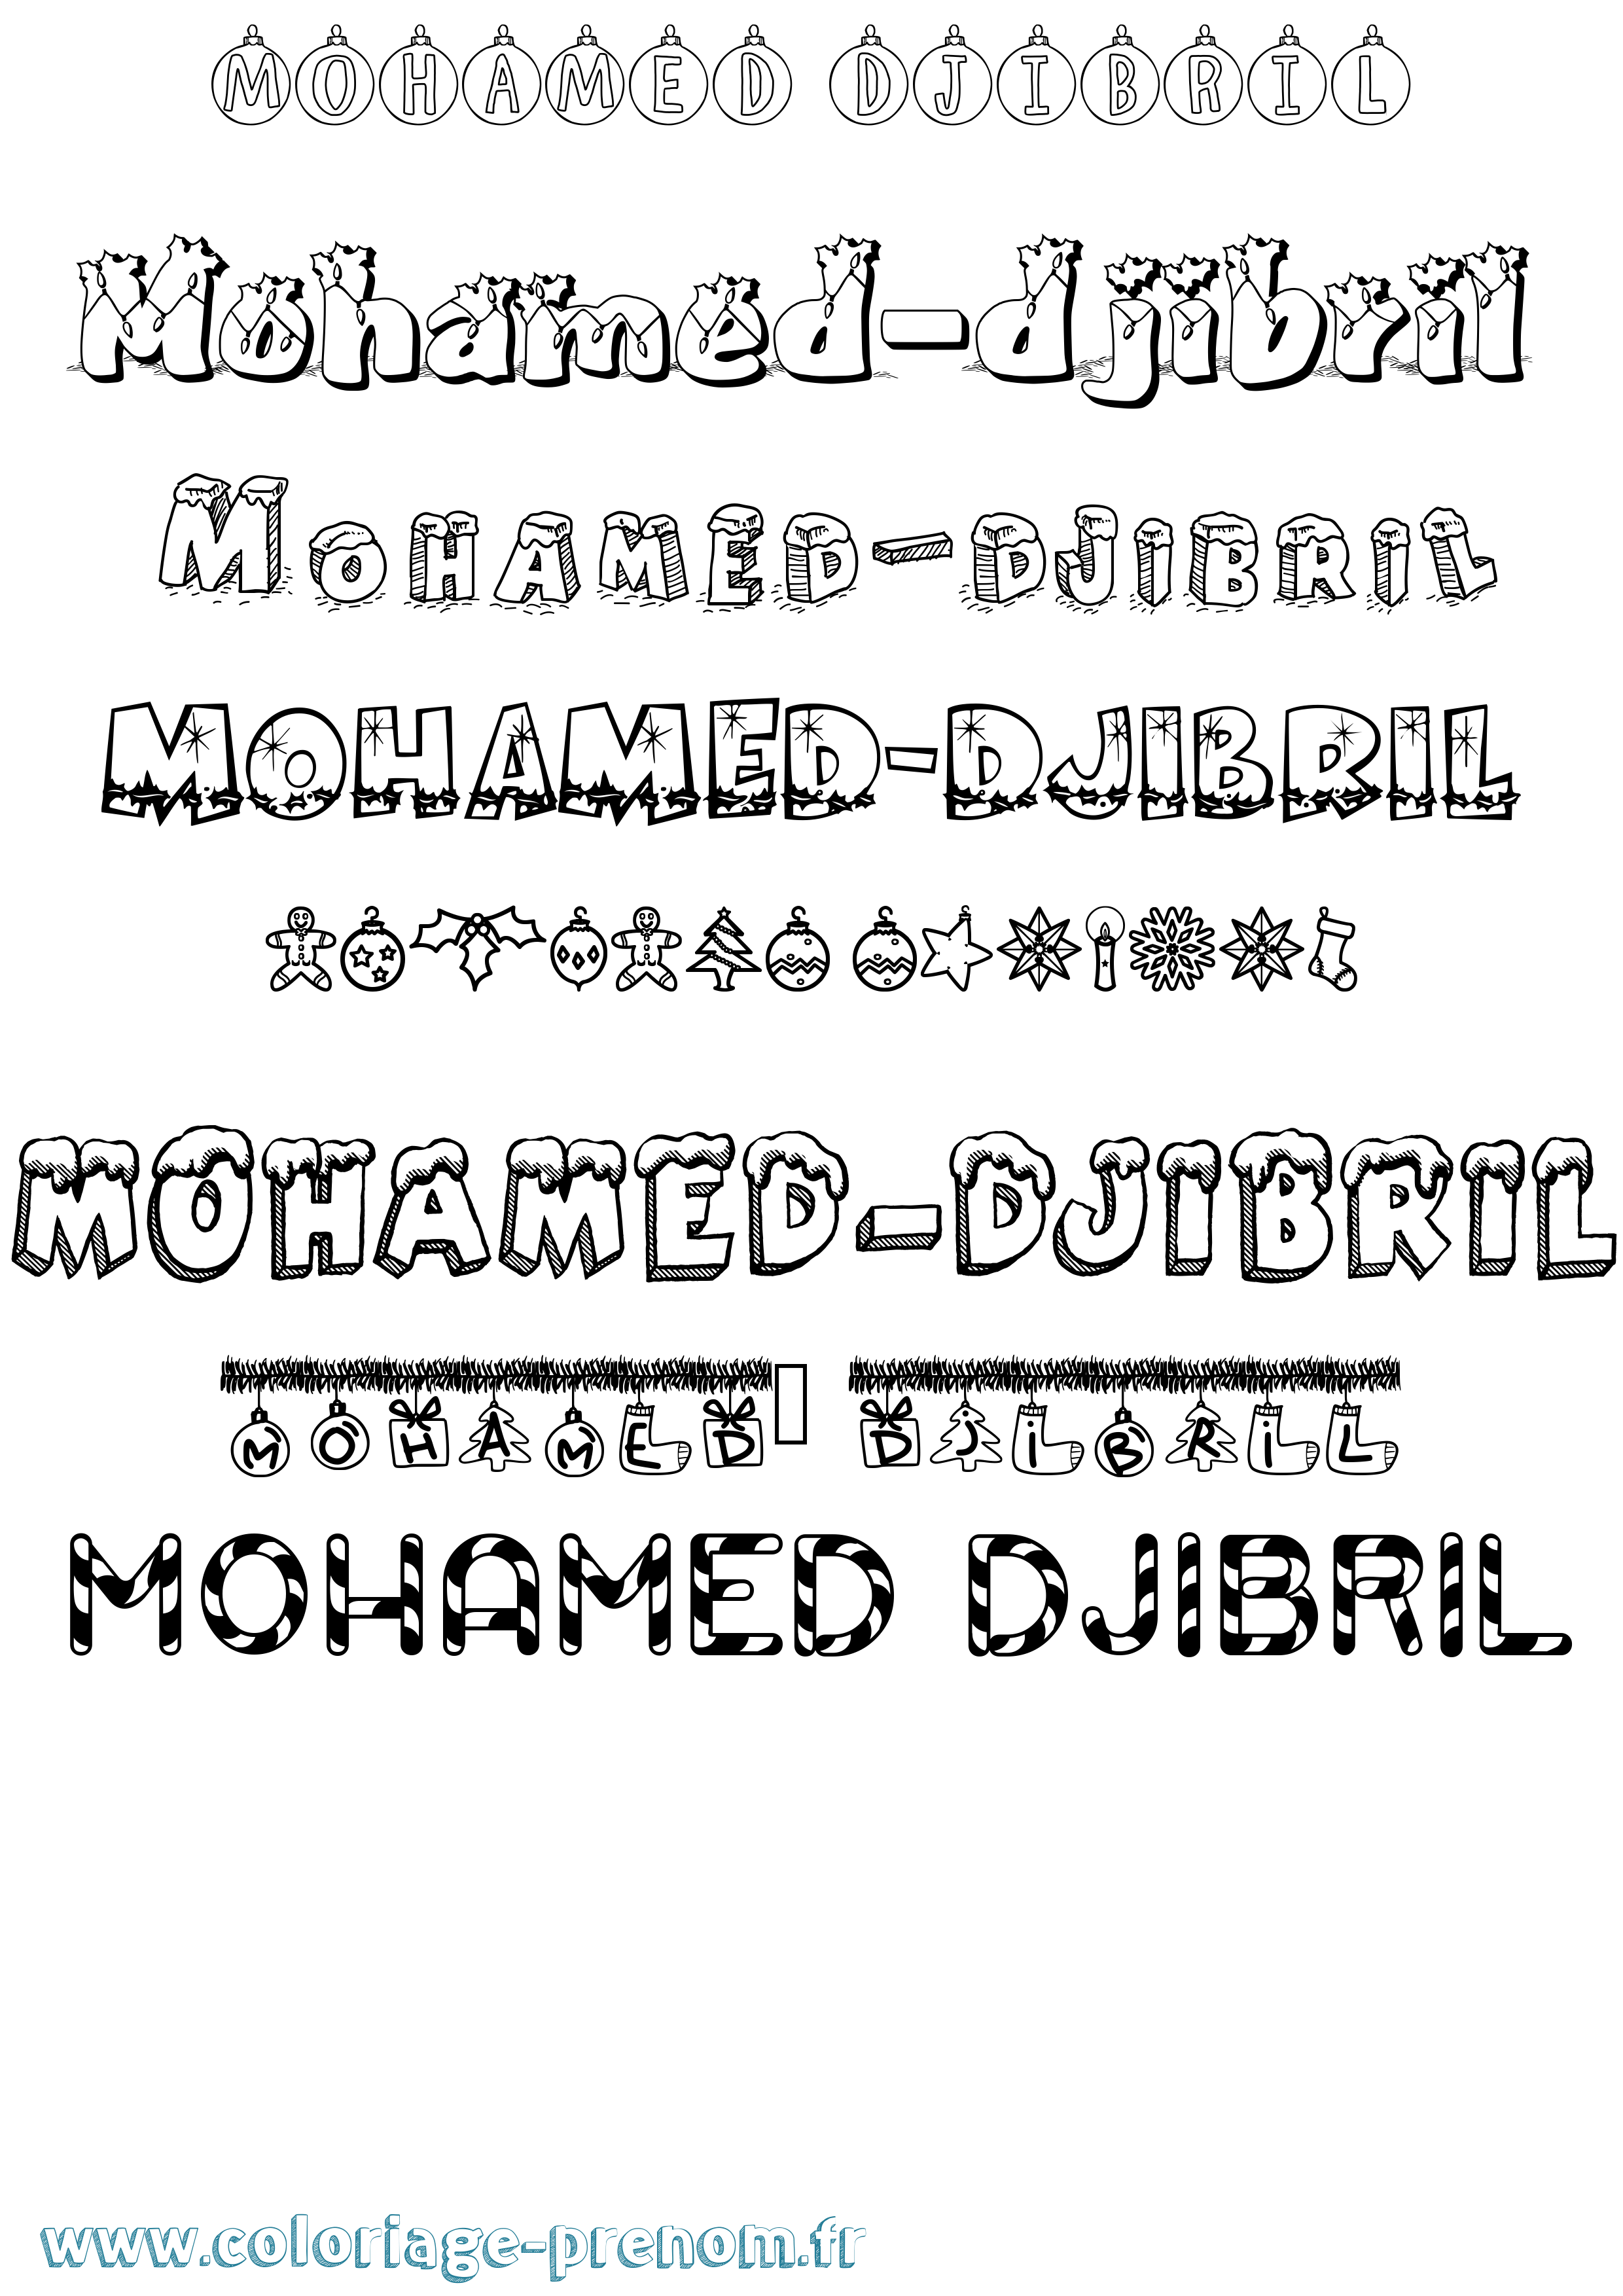 MOHAMED DJIBRIL
Mohamed-djibril
MOHAMED-DJIBRIL
MOHAMED-DJIBRIL
MOHAMED-DJIBRIL
MOHAMED DJIBRIL
MOHAMED DJIBRIL
www.coloriage-prenom.fr